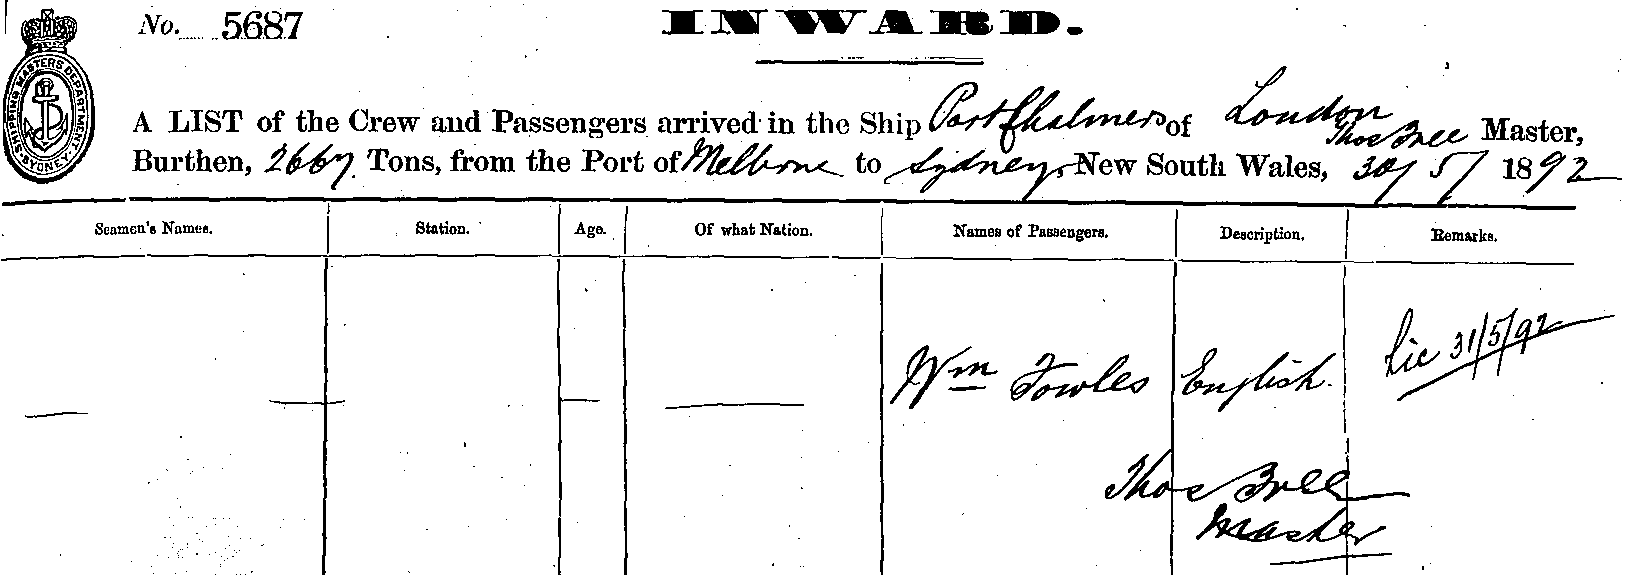 No. 5687
INWARD.
SHIPPING MASTERS DEPARTMENT SYDNEY
A LIST of the Crew and Passengers arrived in the Ship Port Chalmers of London Thos Bree Master,
Burthen, 2667 Tons, from the Port of Melbrne to Sydney, New South Wales, 30/5/1892
Seamen's Names. Station. Age. Of what Nation. Names of Passengers. Description. Remarks.
Wm Fowles English. Lic 31/5/92
Thos Bree
Master